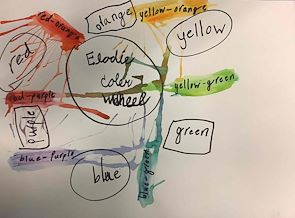 red-orange
orange
yellow-orange
yellow
red
Elodie
color
wheel
red-purple
yellow-green
purple
green
blue-purple
blue
blue-green